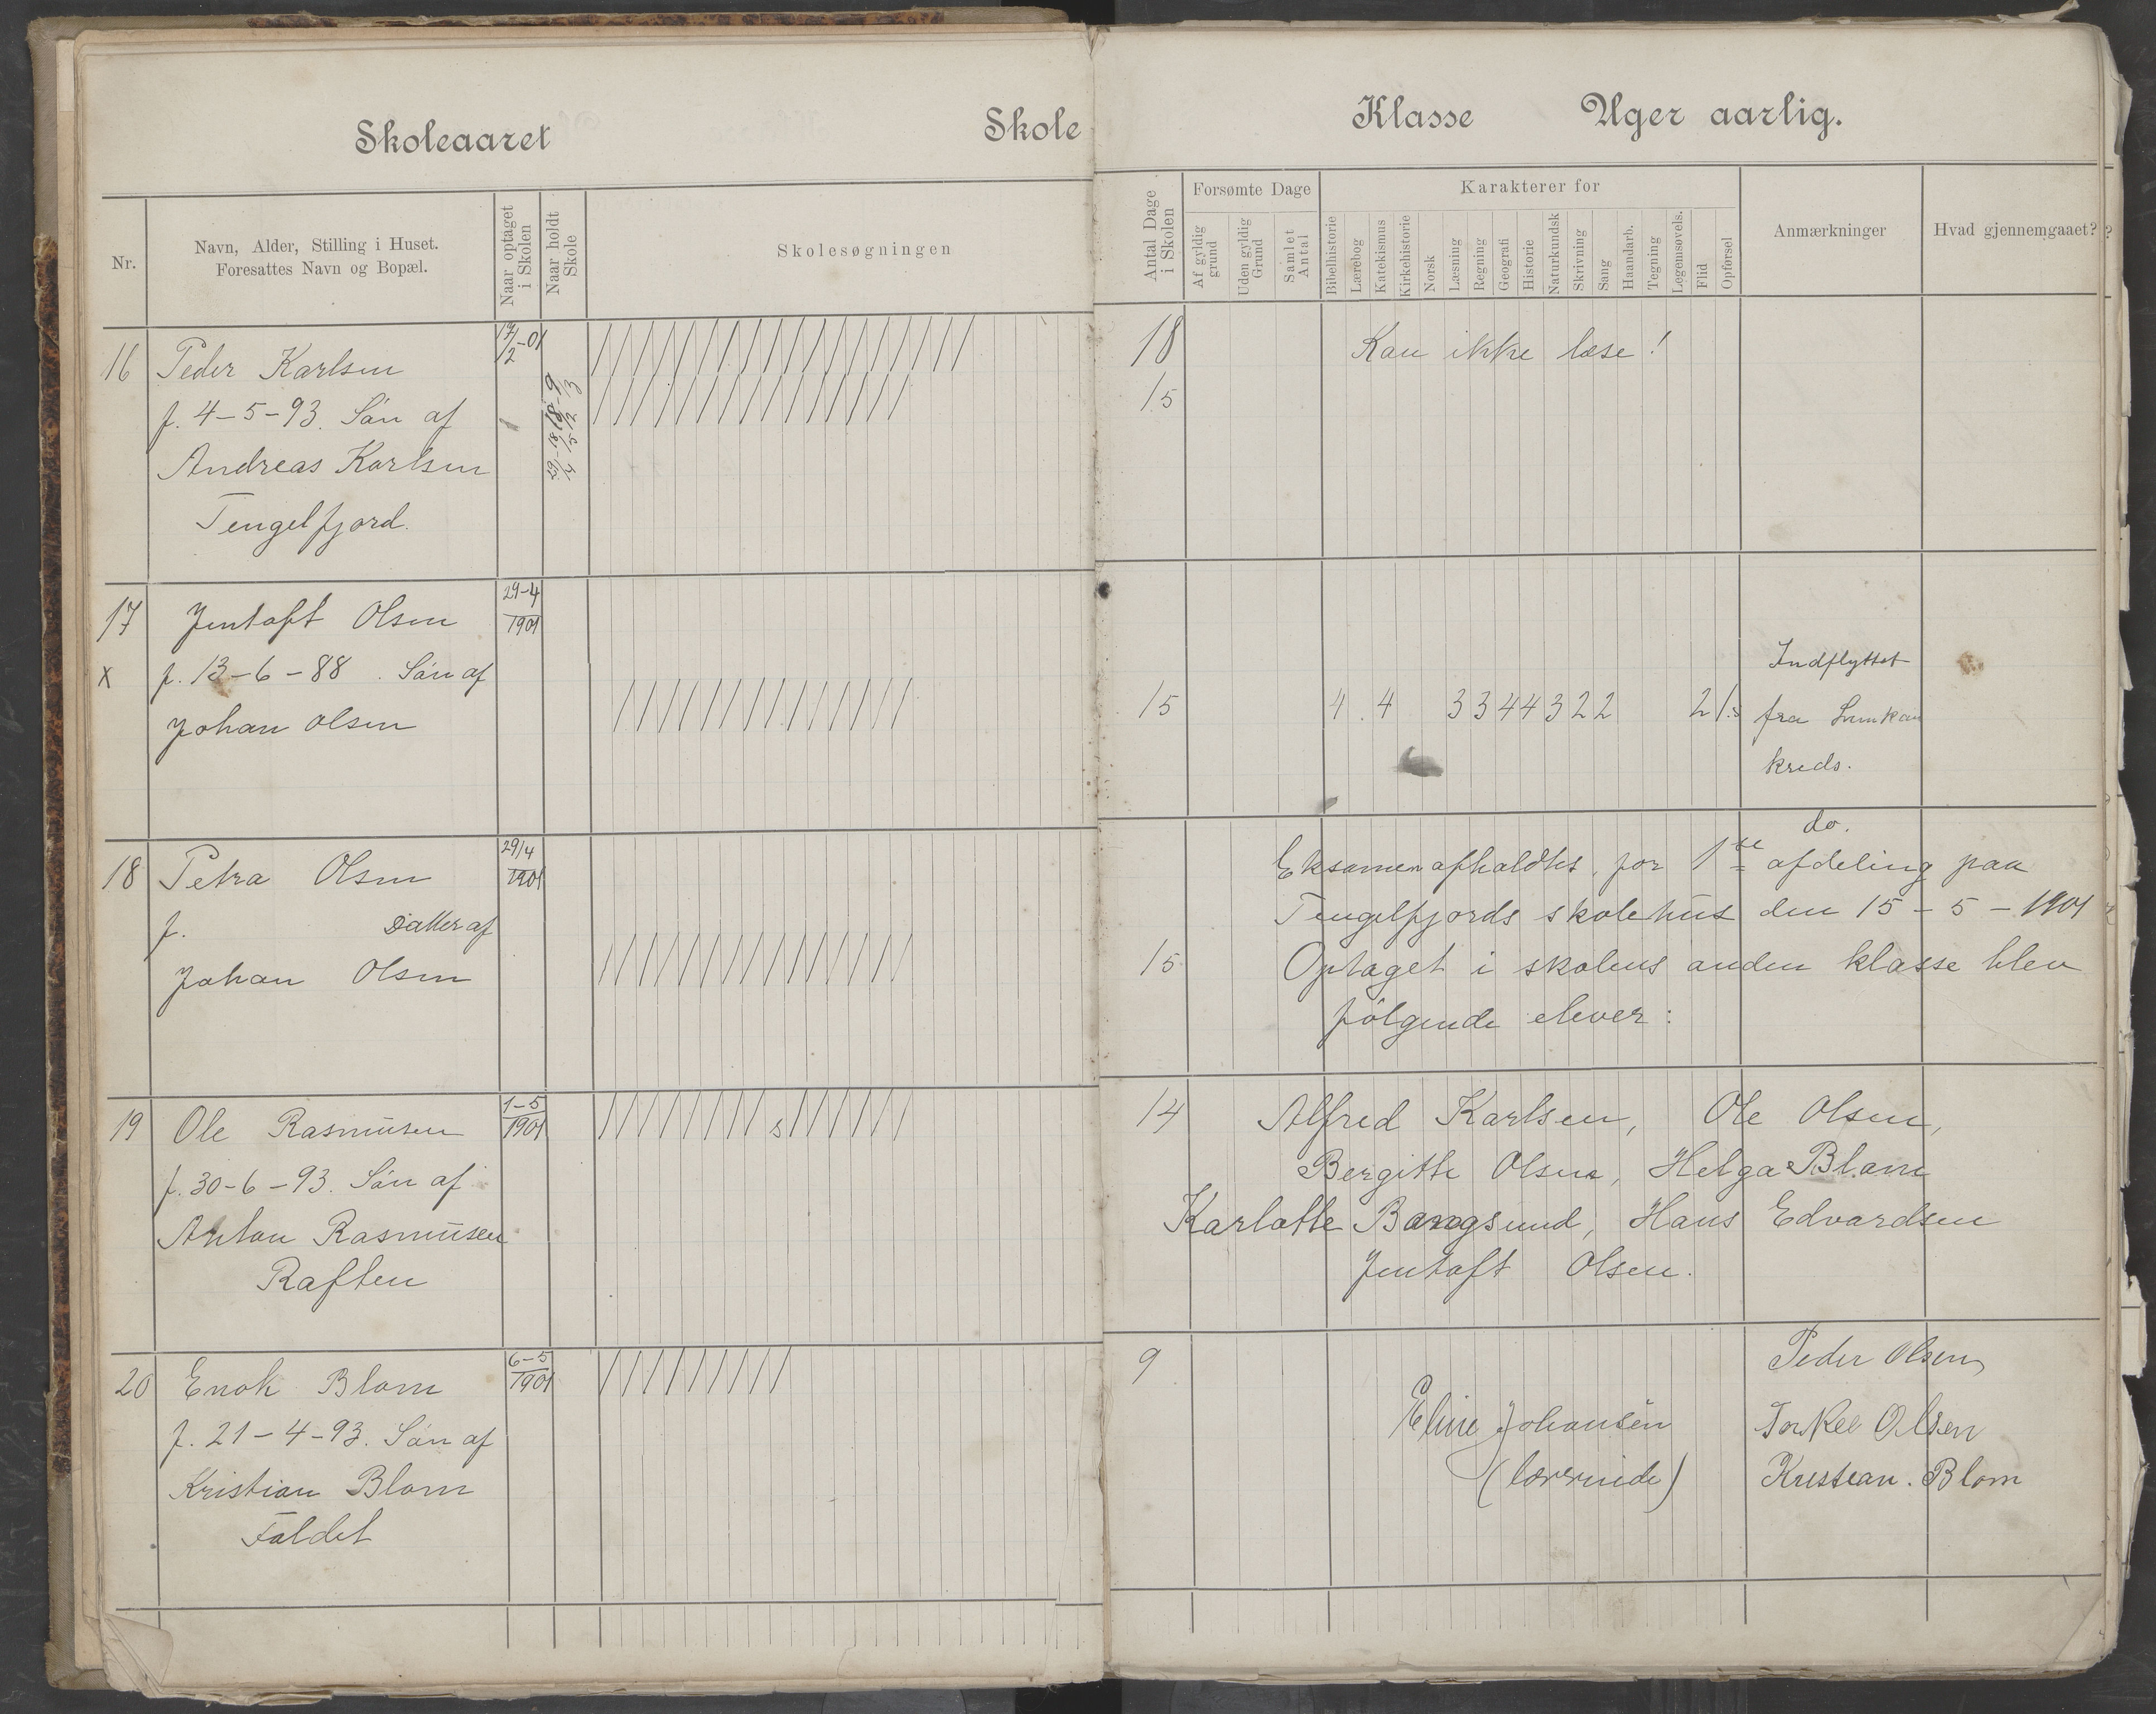 Skoleaaret Skole
Klasse Uger aarlig.
Nr.
Navn, Alder, Stilling i Huset.
Foresattes Navn og Bopæl.
Naar optaget
i Skolen
Naar holdt
Skole
Skolesøgningen
Antal Dage
i Skolen
Forsømte Dage
Af gyldig
grund
Uden gyldig
Grund
Samlet
Antal
Karakterer for
Bibelhistorie
Lærebog
Katekismus
Kirkehistorie
Norsk
Læsning
Regning
Geografi
Historie
Naturkundsk
Skrivning
Sang
Haandarb.
Tegning
Legemsøvels.
Flid
Opførsel
Anmærkninger
Hvad gjennemgaaet?
16 Peder Karlsen
f. 4-5-93. Sön af
Andreas Karlsen
Tengelfjord.
18 Kan ikke læse!
15
17 Jentoft Olsen 29-4
1901
x f. 13-6-88. Sön af
Johan Olsen
15 4 4 3 3 4 4 3 2 2 2 1.5
Indflyttet
fra
kreds.
18 Petra Olsen 29/4
1901
f. Datter af
Johan Olsen
15
do.
Eksamen afholdtes for 1ste afdeling paa
Tengelfjords skolehus den 15-5-1901
Optaget i skolens anden klasse blev
fölgende elever:
19 Ole Rasmüsen 1-5
1901
f. 30-6-93. Sön af
Anton Rasmüsen
Raften
s
14 Alfred Karlsen, Ole Olsen,
Bergitte Olsen, Helga Blom
Karlotte Bangsund, Hans Edvardsen
Jentoft Olsen.
20 Enok Blom 6-5
1901
f. 21-4-93. Sön af
Kristian Blom
Faldet
9
Eline Johansen
(lærerinde)
Peder Olsen,
Torkel Olsen
Kristian. Blom